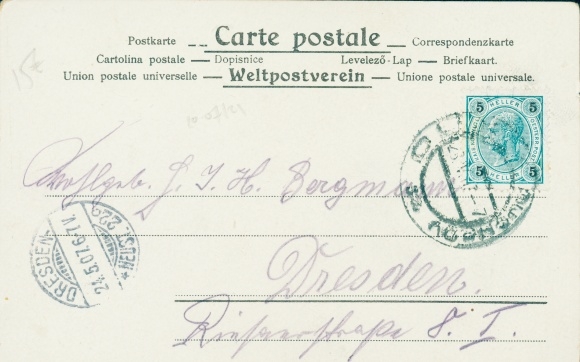 Postkarte Carte postale Correspondenzkarte
Cartolina postale Dopisnice Levelező-Lap Briefkaart.
Union postale universelle Weltpostverein Unione postale universale.
15€
5 HELLER 5
5 HELLER 5
Wohlgeb. J. J. H. Bergmann
DRESDEN-NEUST. 229
24.5.07. 6-7V.
Dresden.
I.